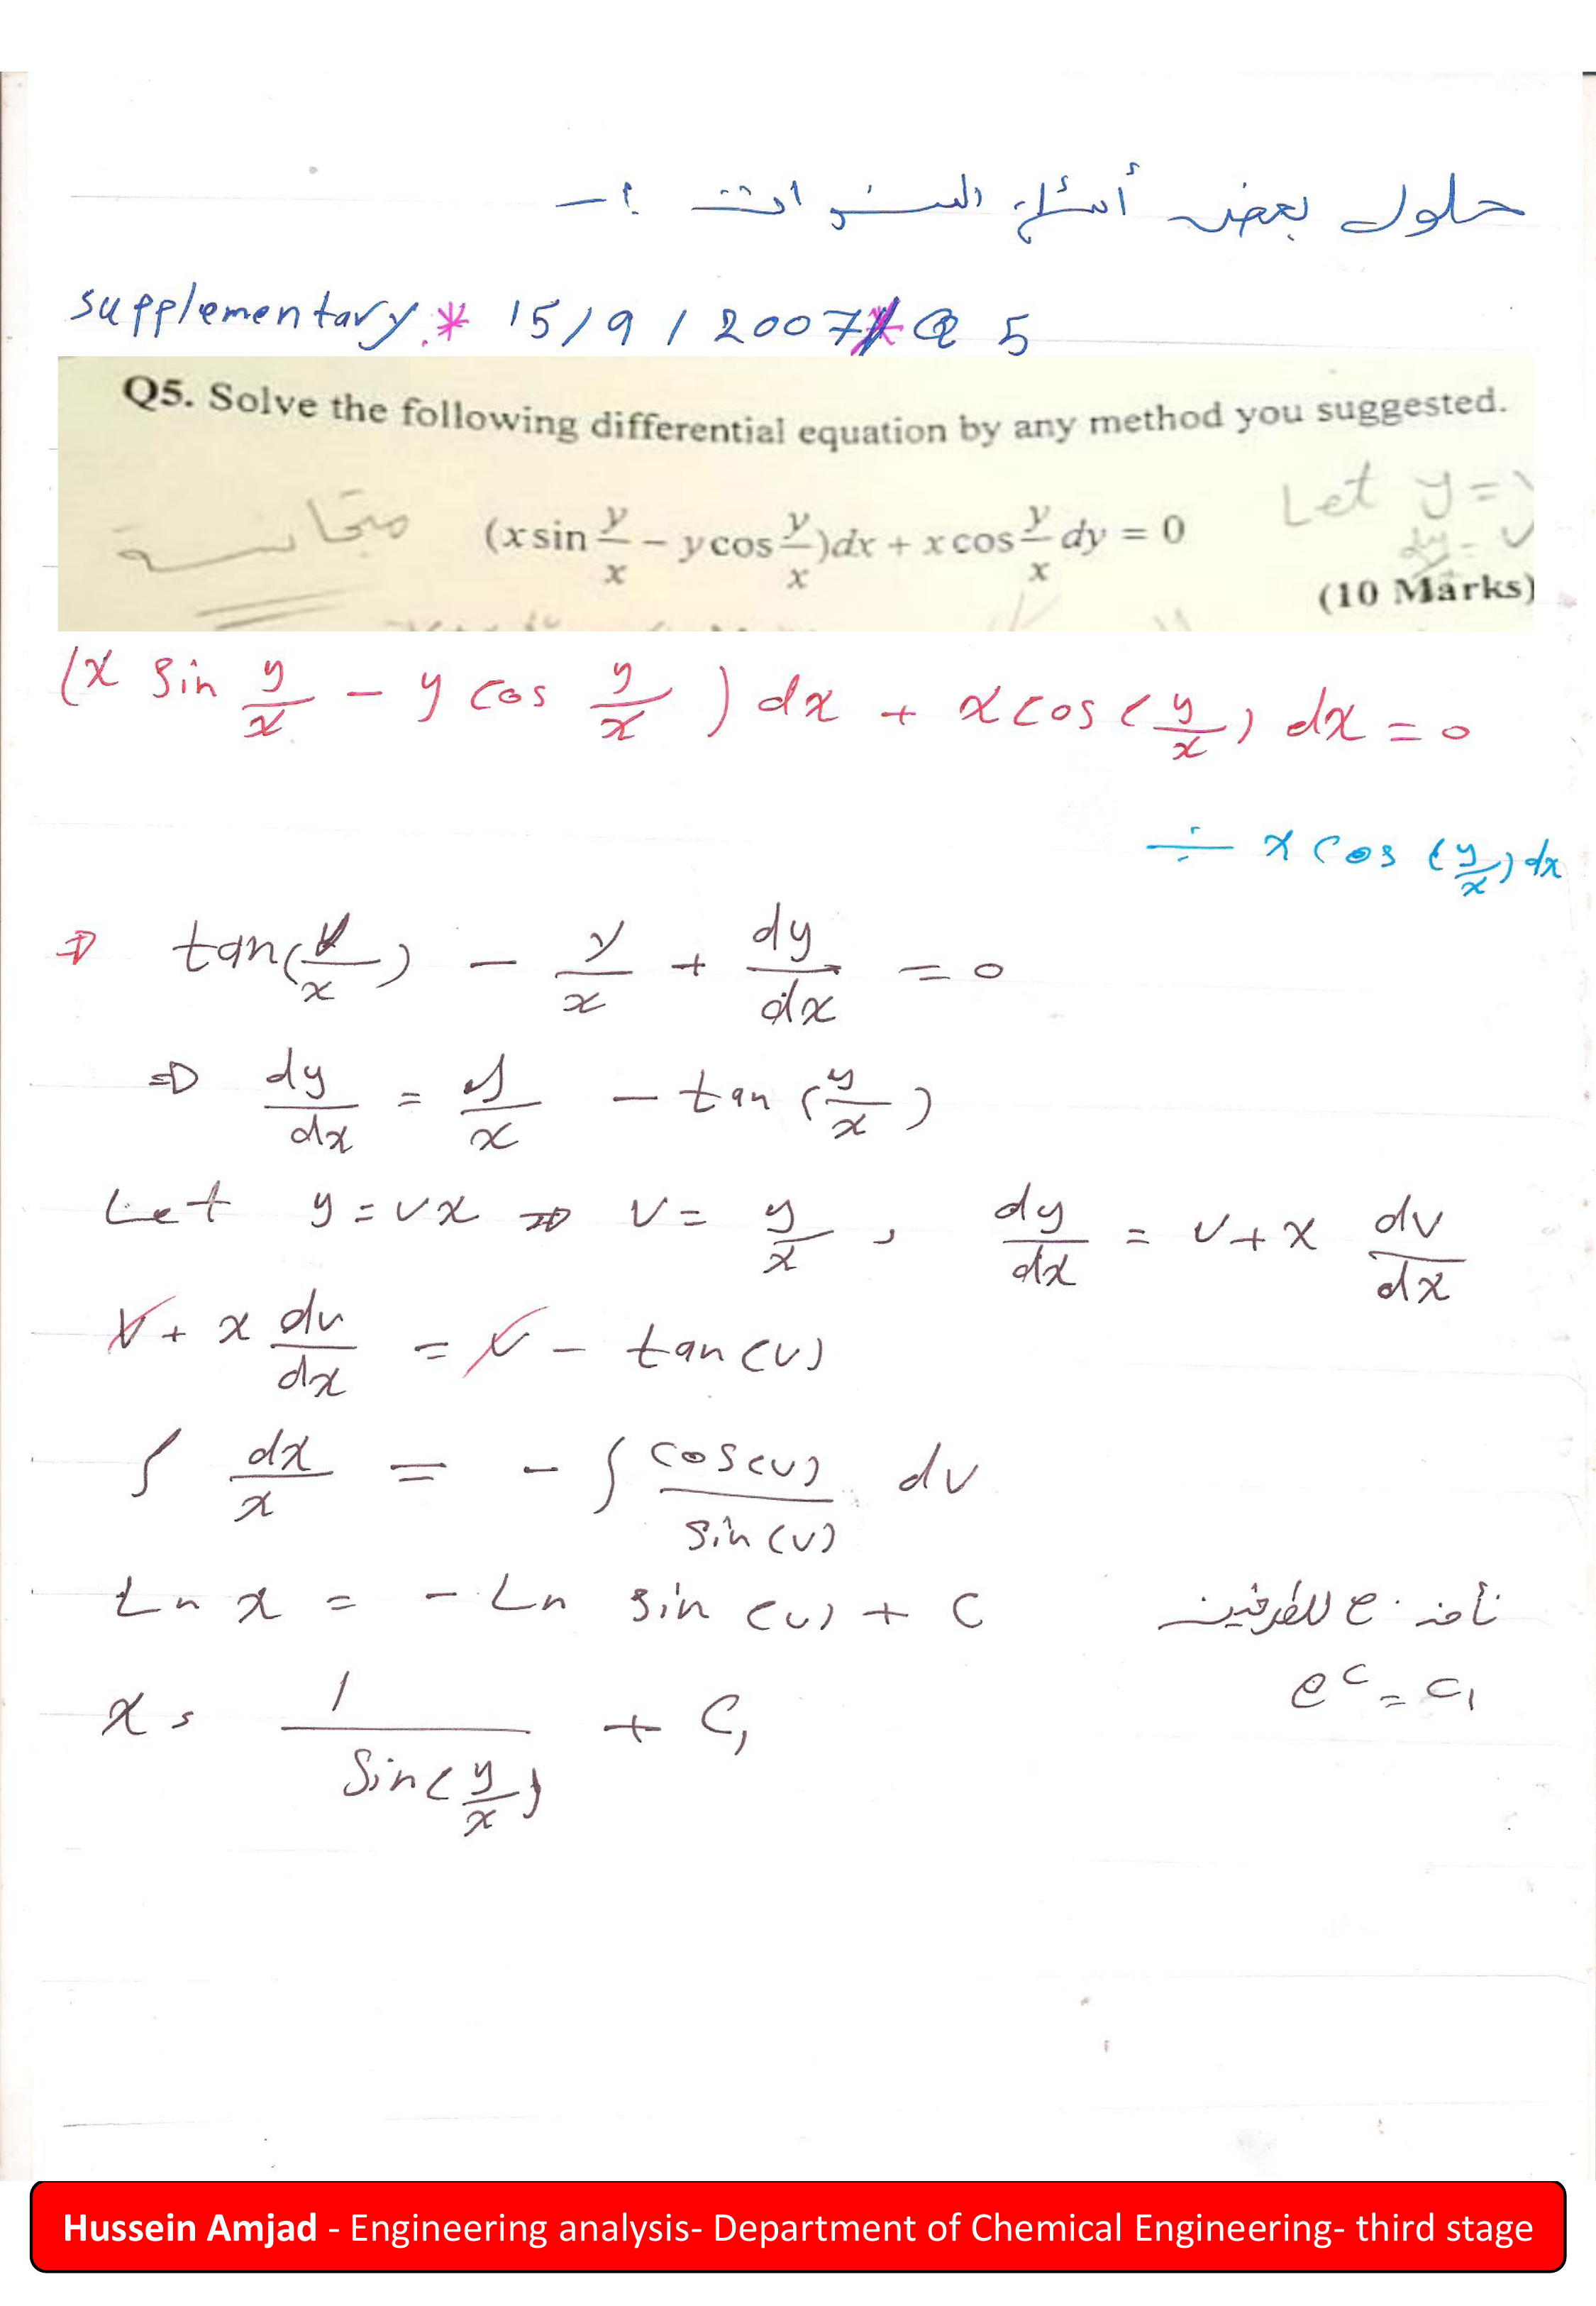 حلول بعض أسئلة السنوات :-
supplementary * 15/9/2007 * Q 5
Q5. Solve the following differential equation by any method you suggested.
متجانسة (x sin y/x - y cos y/x)dx + x cos y/x dy = 0 Let y =
dy =
(10 Marks)
(x sin y/x - y cos y/x) dx + x cos(y/x) dx = 0
÷ x cos(y/x) dx
⇒ tan(y/x) - y/x + dy/dx = 0
⇒ dy/dx = y/x - tan(y/x)
Let y = vx ⇒ v = y/x , dy/dx = v + x dv/dx
v + x dv/dx = v - tan(v)
∫ dx/x = - ∫ cos(v)/sin(v) dv
Ln x = - Ln sin(v) + C نأخذ e للطرفين
x = 1/sin(y/x) + C₁ e^c = C₁
Hussein Amjad - Engineering analysis- Department of Chemical Engineering- third stage